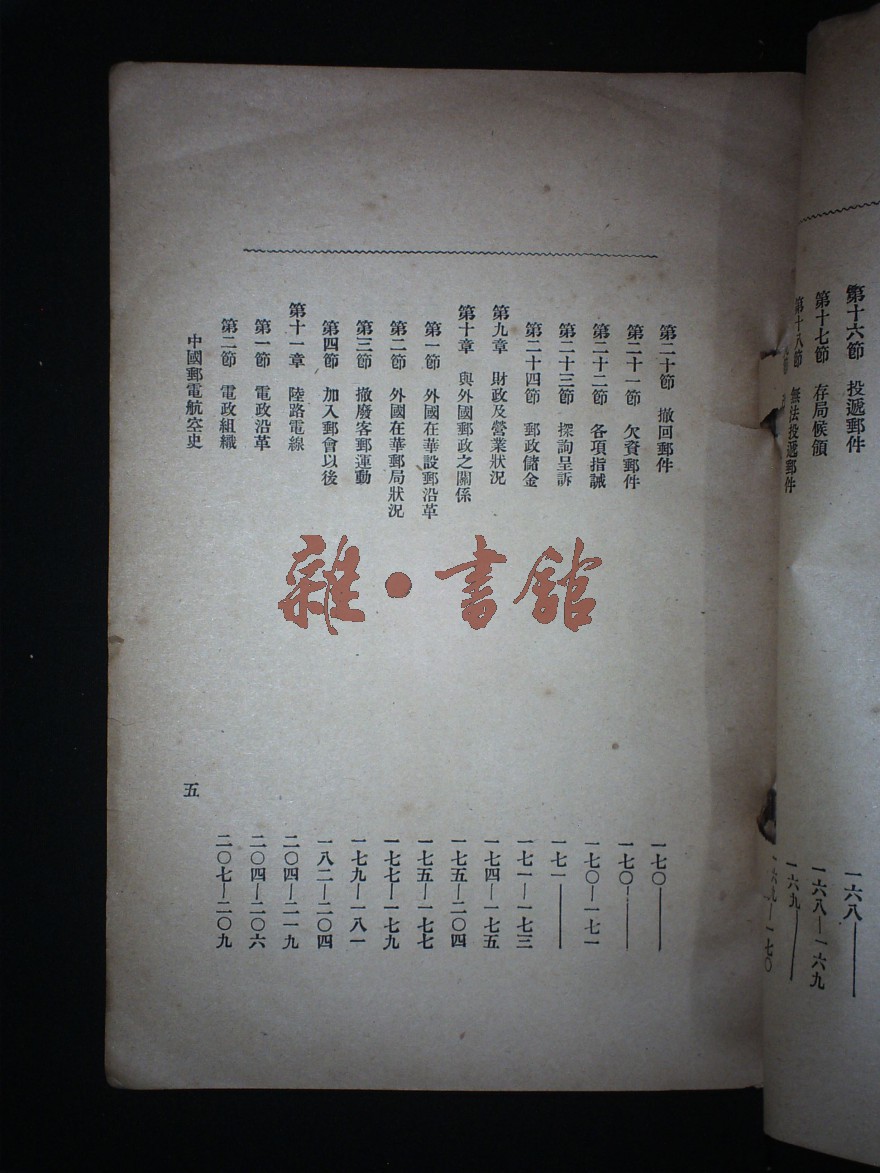 第十六節 投遞郵件 一六八——
第十七節 存局候領 一六八—一六九
第十八節 無法投遞郵件 一六九——
一六九—一七〇
第二十節 撤回郵件 一七〇——
第二十一節 欠資郵件 一七〇——
第二十二節 各項指誡 一七〇—一七一
第二十三節 探詢呈訴 一七一——
第二十四節 郵政儲金 一七一—一七三
第九章 財政及營業狀況 一七四—一七五
第十章 與外國郵政之關係 一七五—二〇四
第一節 外國在華設郵沿革 一七五—一七七
第二節 外國在華郵局狀況 一七七—一七九
第三節 撤廢客郵運動 一七九—一八一
第四節 加入郵會以後 一八二—二〇四
第十一章 陸路電線 二〇四—二一九
第一節 電政沿革 二〇四—二〇六
第二節 電政組織 二〇七—二〇九
中國郵電航空史 五
雜·書館